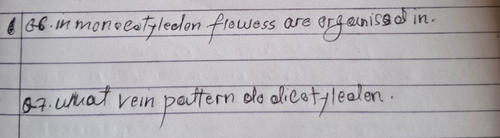 Q6. in monocotyledon flowess are organissd in.
Q7. what vein pattern do dicotyledon.